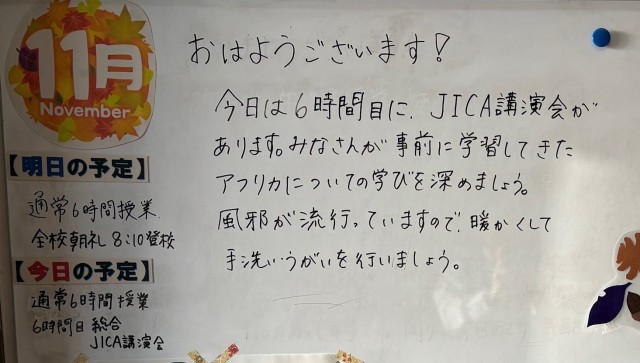 11月
November
おはようございます!
今日は6時間目に、JICA講演会が
あります。みなさんが事前に学習してきた
アフリカについての学びを深めましょう。
風邪が流行っていますので、暖かくして
手洗いうがいを行いましょう。
【明日の予定】
通常6時間授業
全校朝礼 8:10登校
【今日の予定】
通常6時間授業
6時間目 総合
JICA講演会